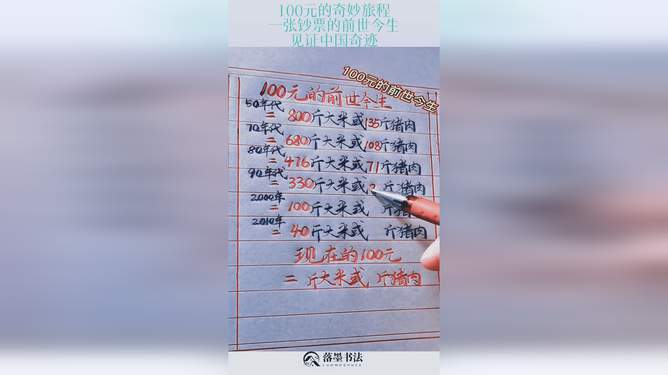 100元的奇妙旅程
一张钞票的前世今生
见证中国奇迹
100元的前世今生
100元的前世今生
50年代
= 800斤大米或135斤猪肉
70年代
= 680斤大米或108斤猪肉
80年代
= 416斤大米或71斤猪肉
90年代
= 330斤大米或 斤猪肉
2000年
= 100斤大米或 斤猪肉
2010年
= 40斤大米或 斤猪肉
现在的100元
= 斤大米或 斤猪肉
落墨书法